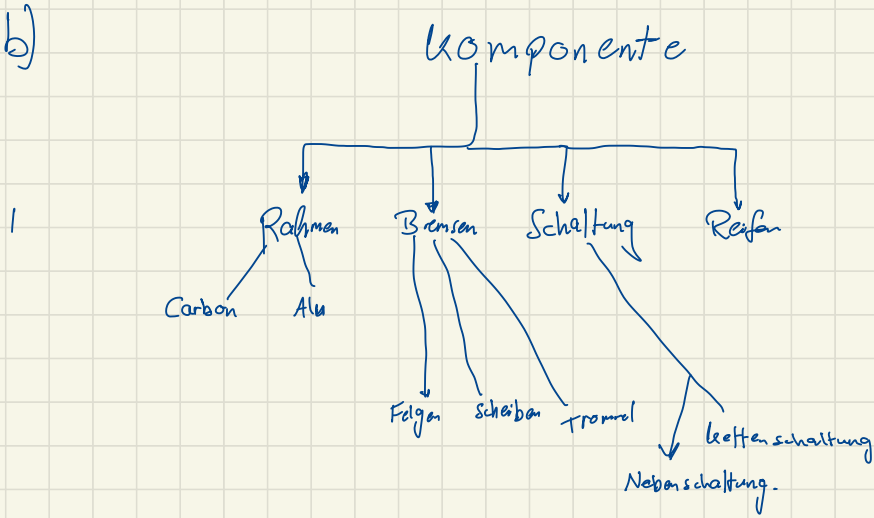 b)
Komponente
Rahmen Bremsen Schaltung Reifen
Carbon Alu
Felgen Scheiben Trommel
Kettenschaltung
Nabenschaltung.